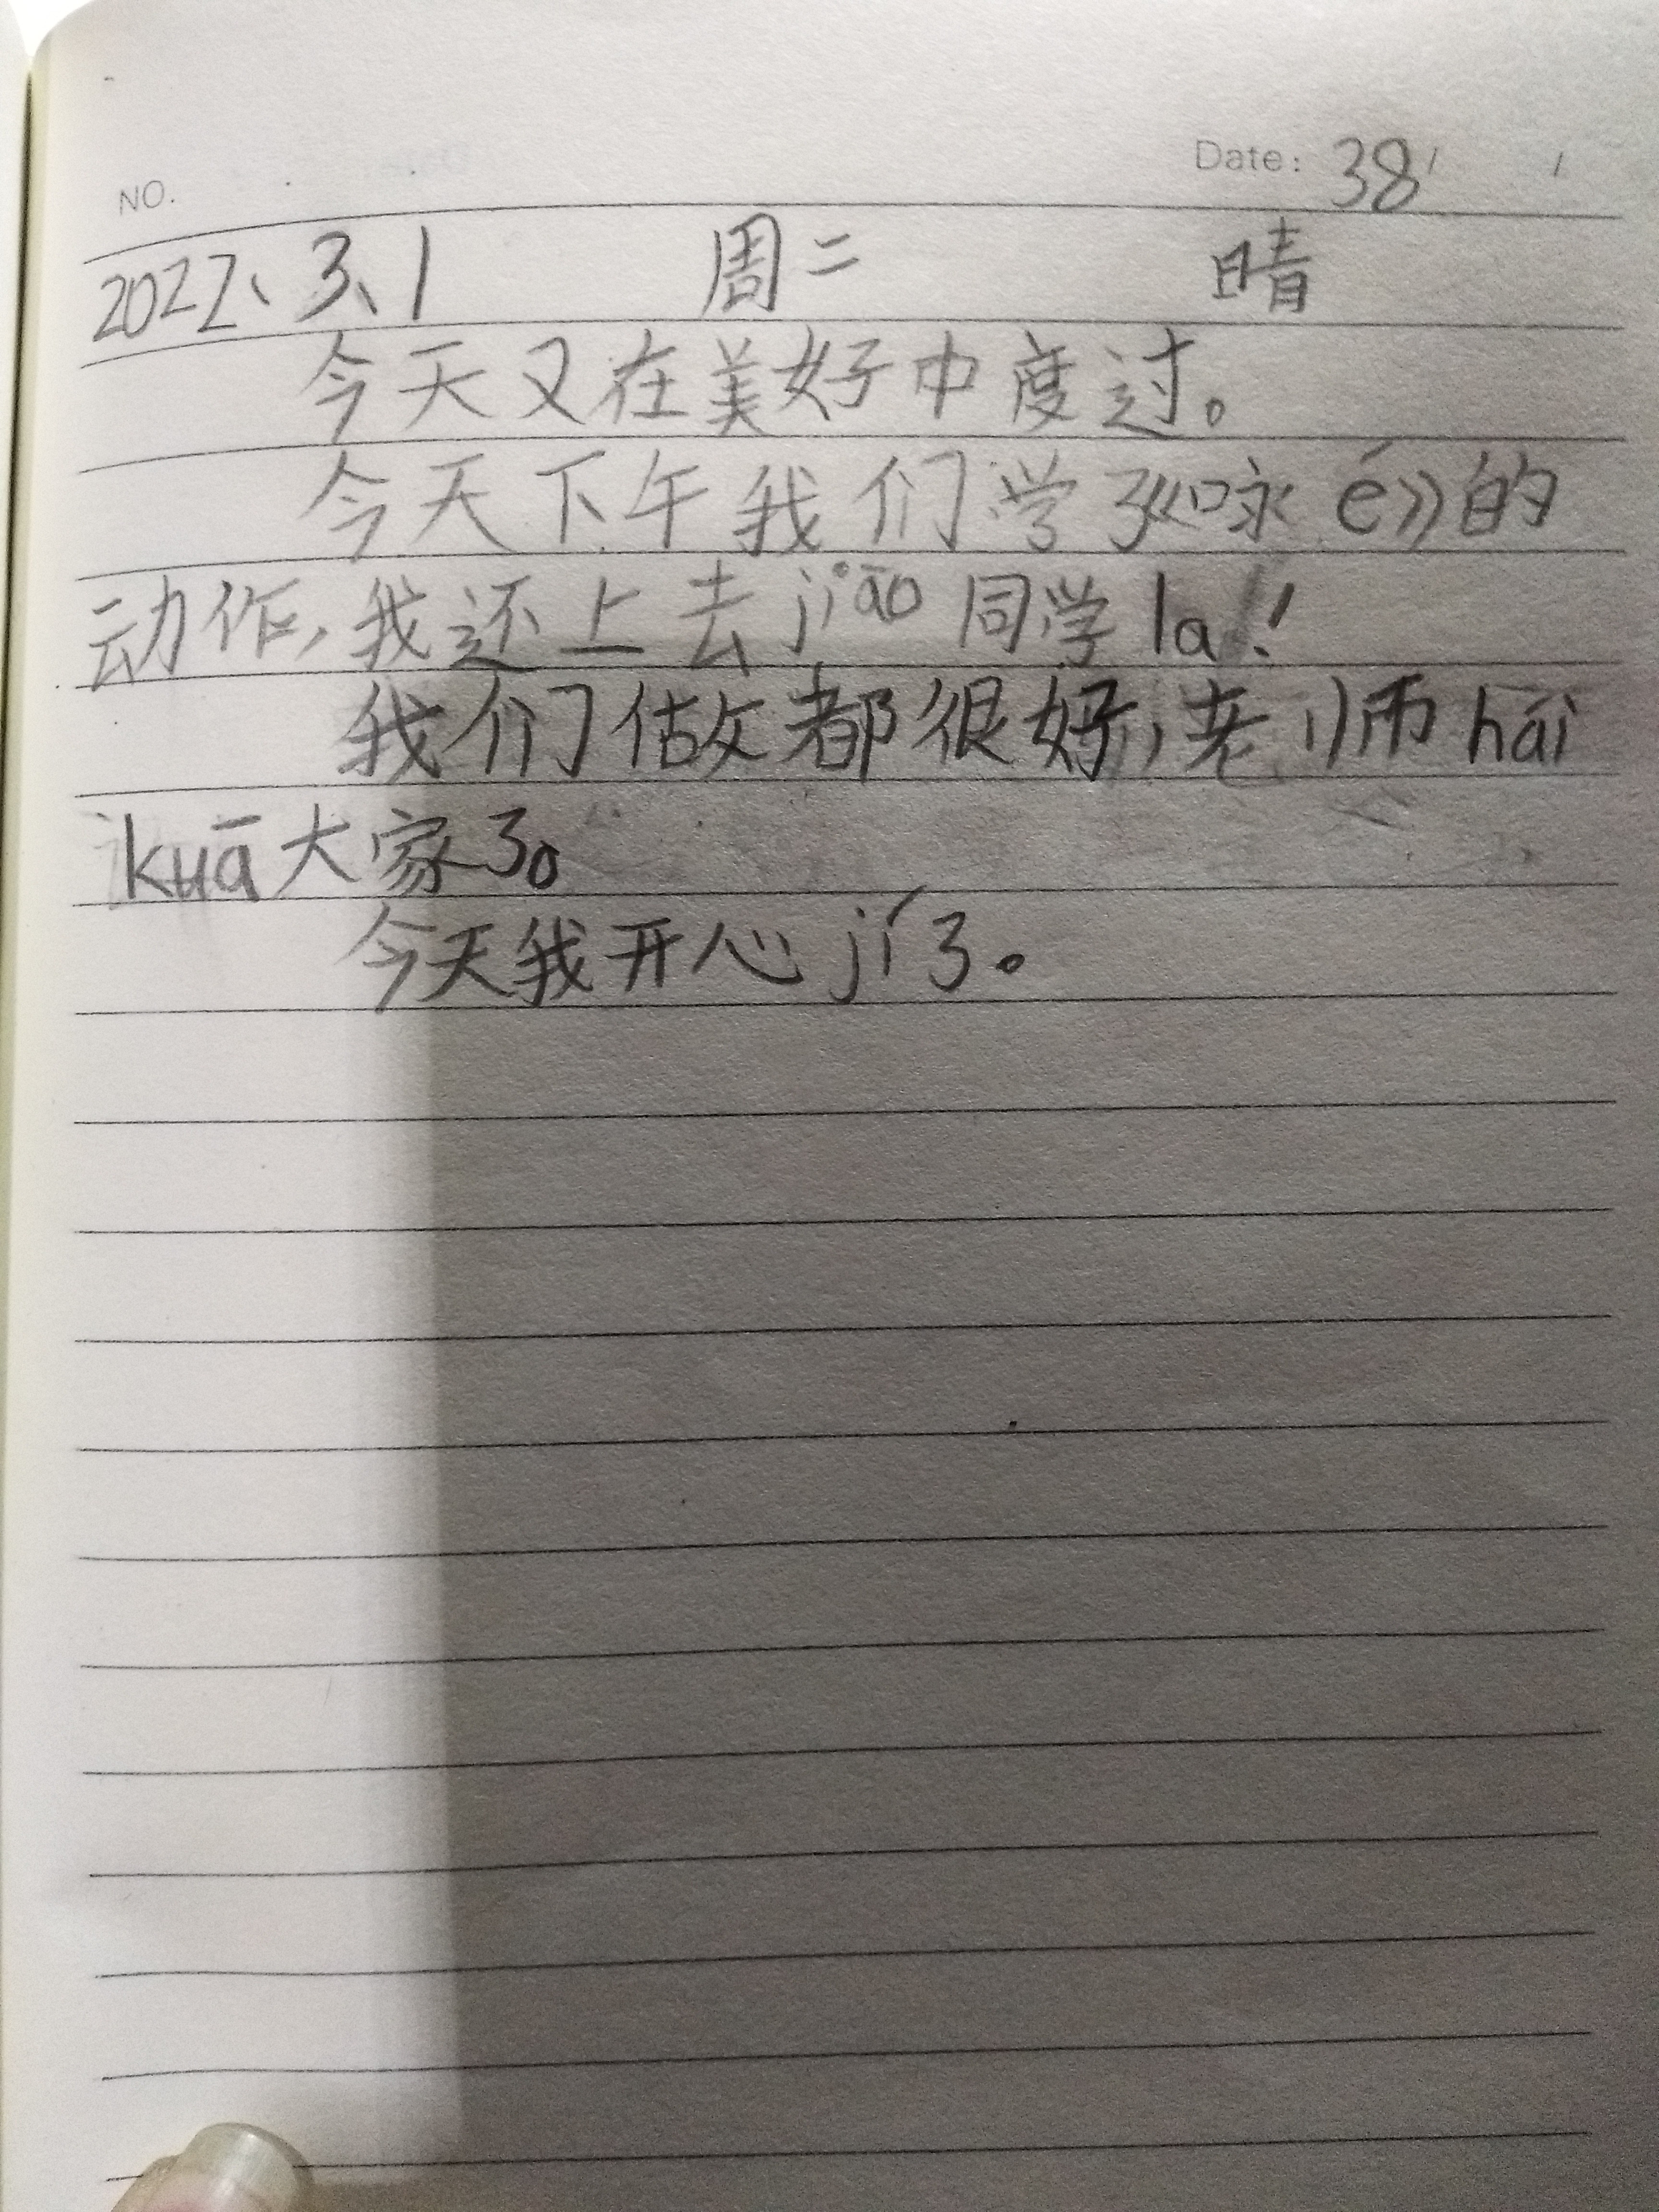 NO.
Date: 38 / /
2022、3、1 周二 晴
今天又在美好中度过。
今天下午我们学了《咏é》的
动作,我还上去jiāo同学la!
我们做都很好,老师hāi
kuā大家了。
今天我开心jí了。